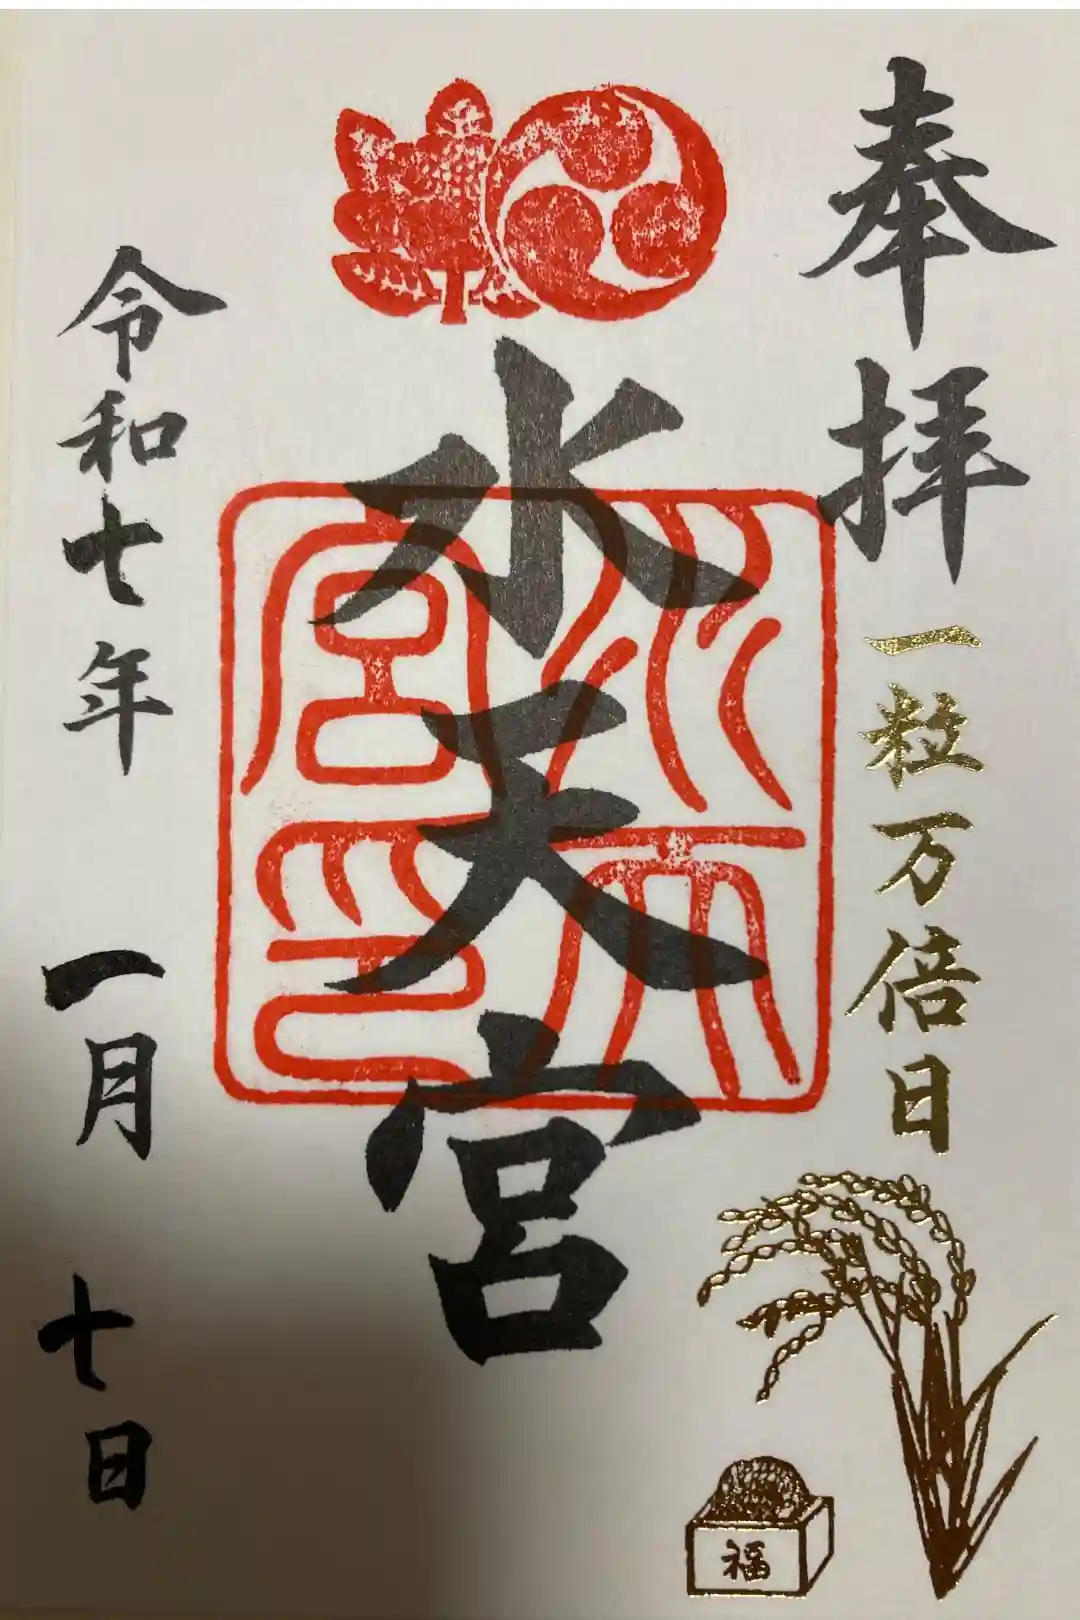 奉拝
一粒万倍日
水天宮
水天宮印
令和七年
一月
七日
福